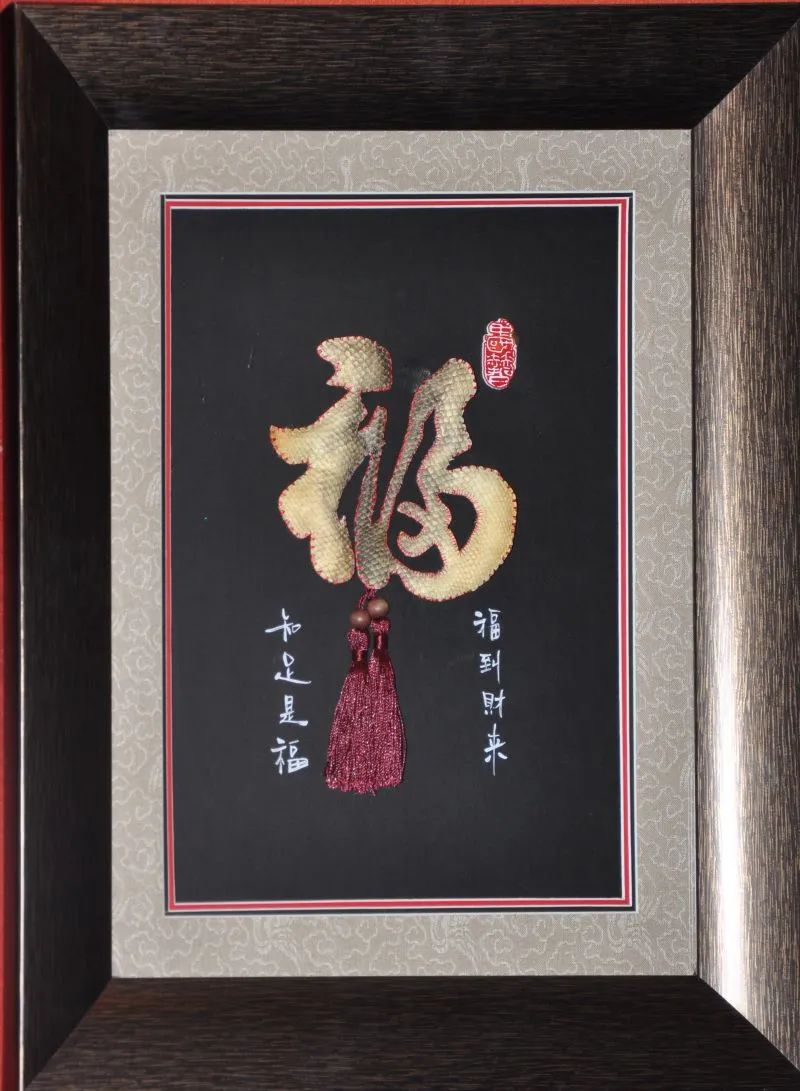 福
福到財来
知足是福